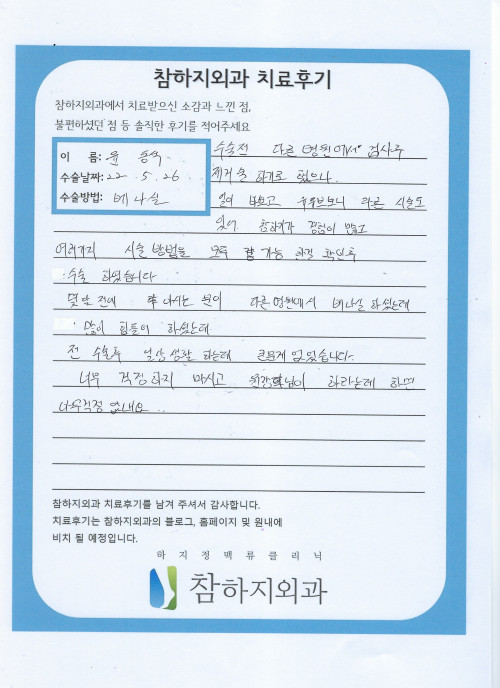 참하지외과 치료후기
참하지외과에서 치료받으신 소감과 느낀 점,
불편하셨던 점 등 솔직한 후기를 적어주세요
이 름: 윤
수술날짜: 22. 5. 26
수술방법: 베나실
수술전 다른 병원에서 검사후
제거술 하기로 했으나.
보고 다른 시술도
있어 참하지가 경험이 많고
여러가지 시술 방법을 모두 할 가능 한걸 확인후
수술 하였습니다
몇달 전에 아시는 분이 다른병원에서 베나실 하셨는데
많이 힘들어 하셨는데
전 수술후 일상생활 하는데 큰문제 없었습니다.
너무 걱정하지 마시고 원장님이 하라는데 하면
너무걱정 없네요..
참하지외과 치료후기를 남겨 주셔서 감사합니다.
치료후기는 참하지외과의 블로그, 홈페이지 및 원내에
비치 될 예정입니다.
하지정맥류클리닉
참하지외과